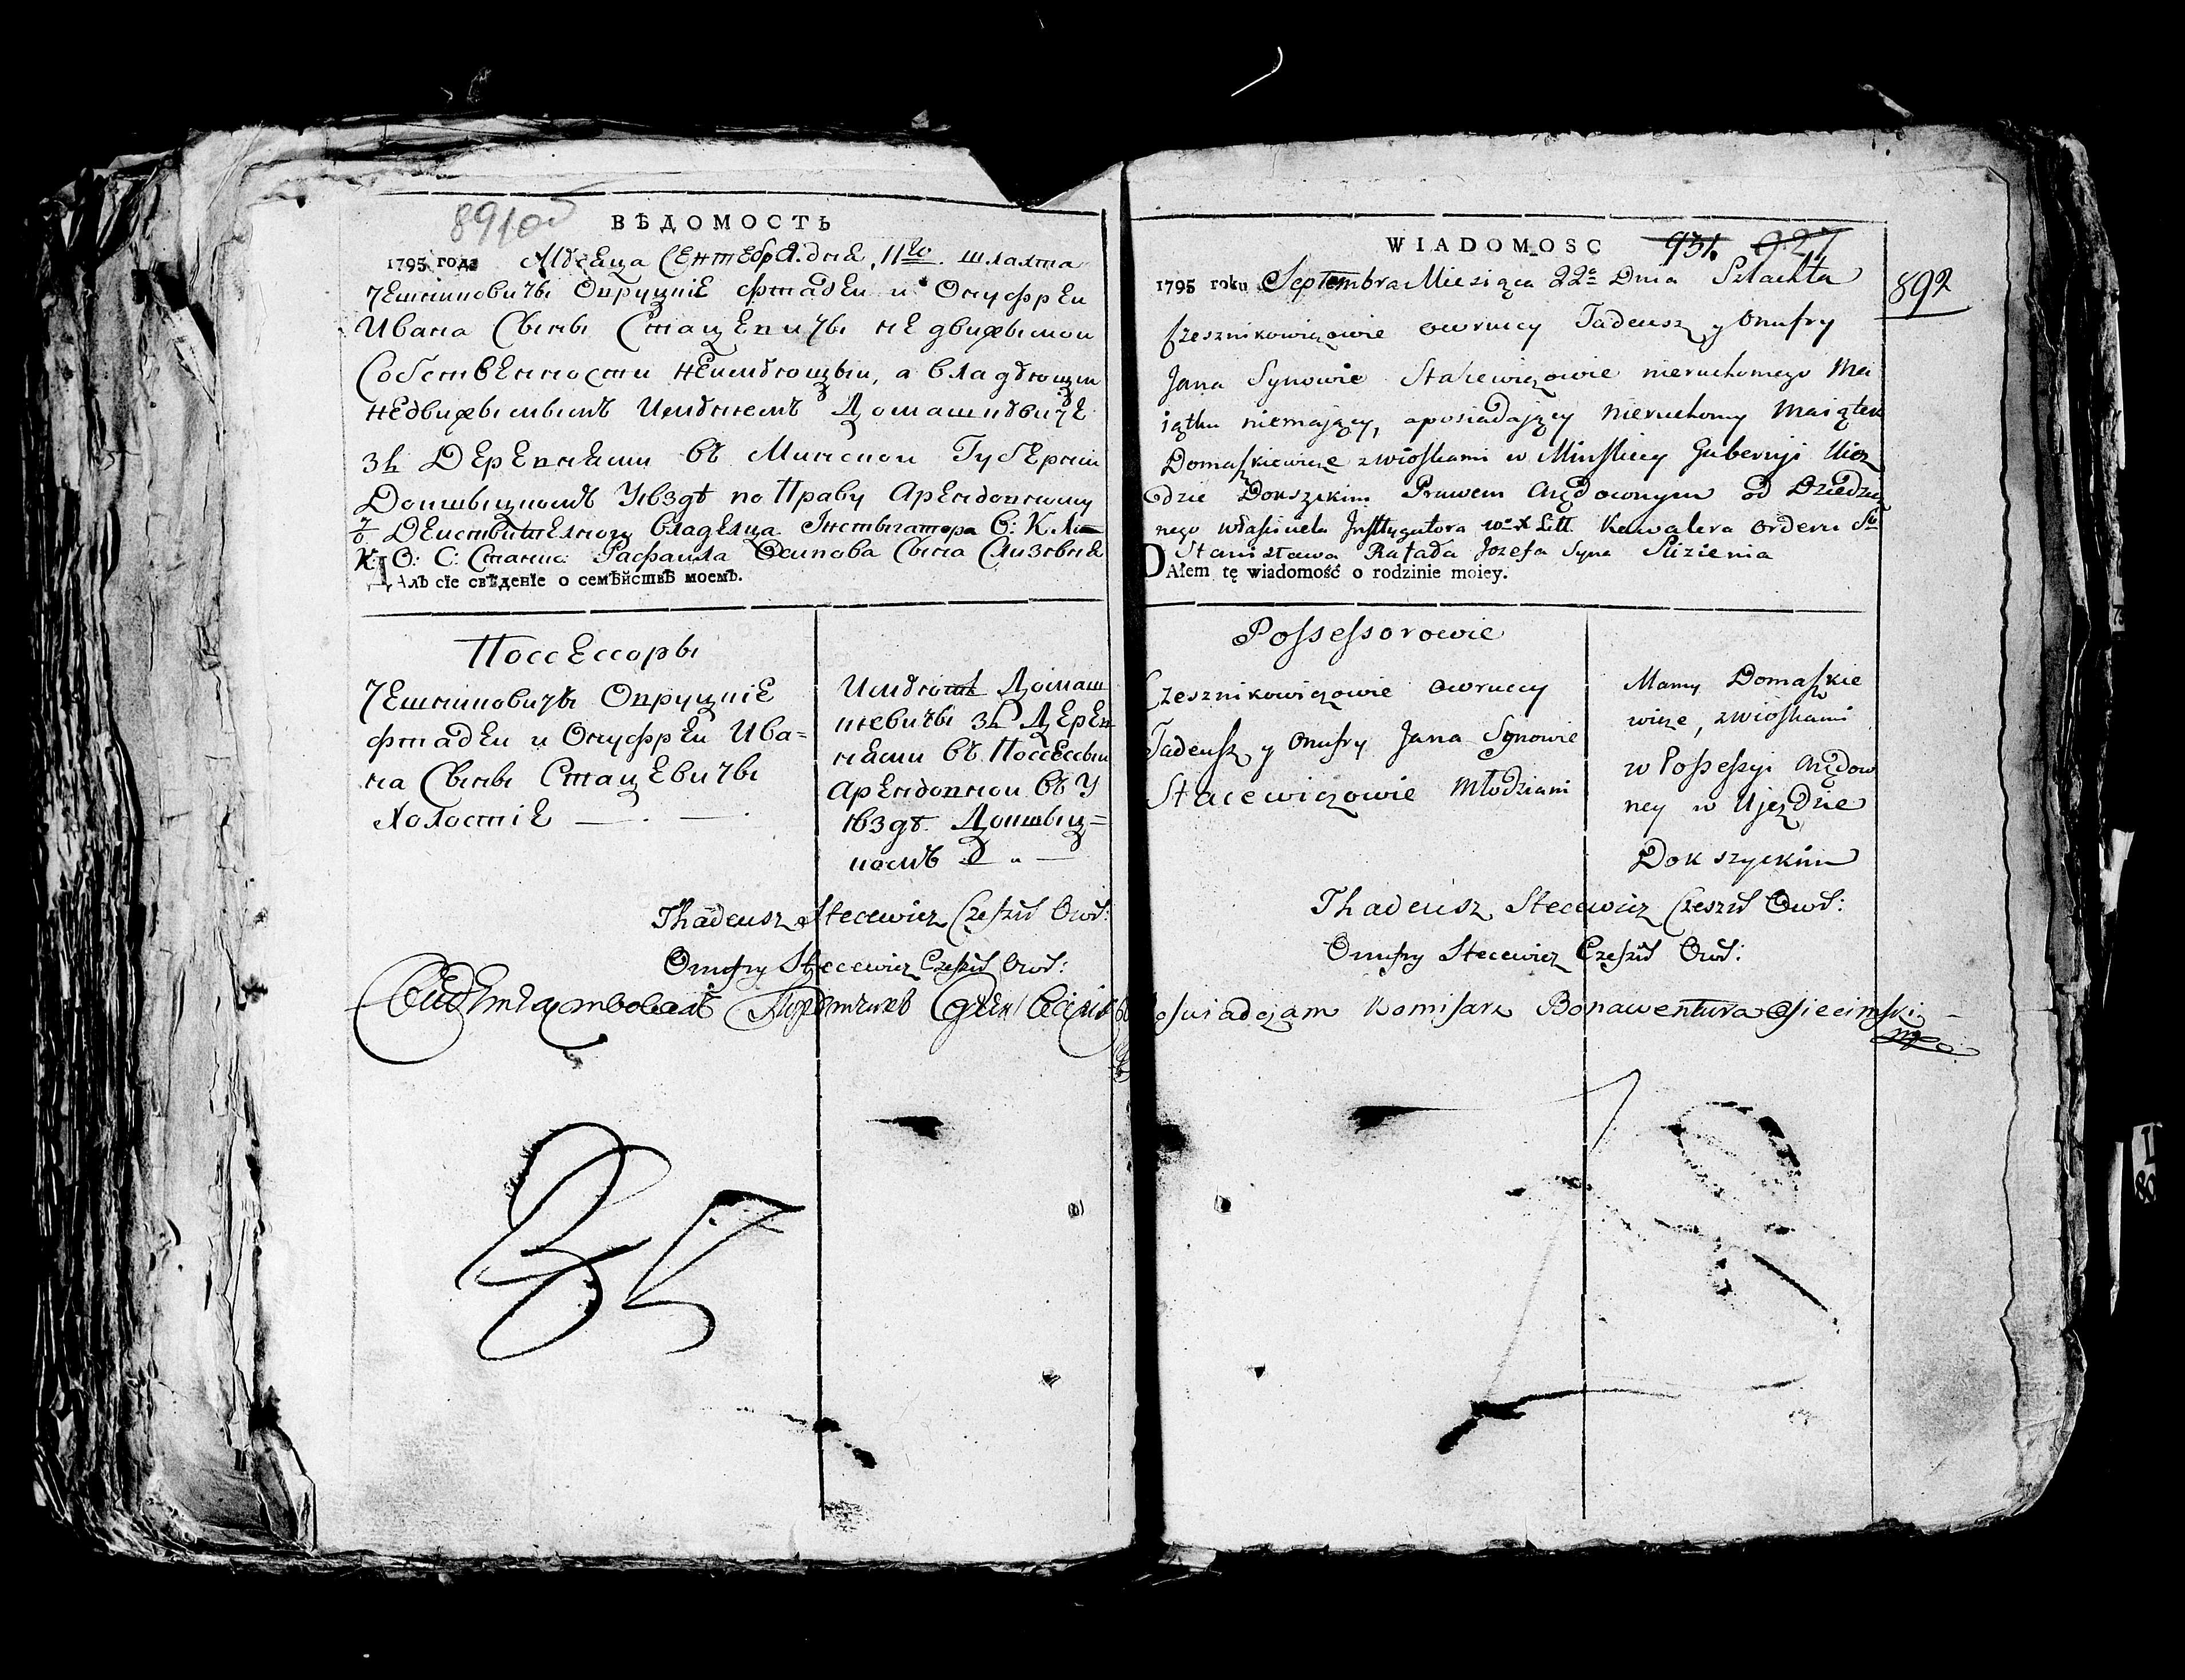 891об
ВѢДОМОСТЬ
1795 года Мѣсяца Сентебря дня 11го шляхта
Чешниковичы Овруцкіе Фтадеи и Онуфреи
Ивана Сыны Стацевичы недвижымои
Собственности неимѣющыи, а владѣющыи
недвижымымъ Имѣнемъ Домашкѣвиче
зъ Деревнями въ Минской Губерніи
Докшыцкомъ Уѣздѣ по Праву Арендовному
Действителного владелца Инстыгатора В: К. Ли
К: О: С: Станис Рафаила Осипова Сына Слизевыя
ДАлъ сіе свѣденіе о семѣйствѣ моемъ.
Поссессоры
Чешниковичы Овруцкіе
Фтадеи и Онуфреи Ива-
на Сыны Стацевичы
Холостіе
Имѣютъ Домаш
кевичы зъ Дерев
нями въ Поссессыи
Арендовнои въ У
ѣздѣ Докшыц=
комъ
Thadeusz Stecewicz Czeszn Owr:
Onufry Stecewicz Czeszn Owr:
Свидѣтелствовалъ Порутчикъ
WIADOMOSC 931. 927
892
1795 roku Septembra Miesiąca 22o Dnia Szlachta
Czesznikowiczowie owruccy Tadeusz y Onufry
Jana Synowie Stacewiczowie nieruchomego Ma
iątku niemaiący, aposiadaiący Nieruchomy Maiątek
Domaszkiewicze zwioskami w Minskiey Gubernyi Uiez
dzie Dokszyckim Prawem Arędownym od Dziedzicz
nego własciciela Instygatora wo X Litt Kawalera orderu Sgo
Stanisława Rafała Jozefa Syna Slizienia
DAłem tę wiadomość o rodzinie moiey.
Possessorowie
Czesznikowiczowie owruccy
Tadeusz y Onufry Jana Synowie
Stacewiczowie Młodziani
Mamy Domaszkie
wicze, zwioskami
w Possessyi Arędow
ney w Ujezdzie
Dokszyckim
Thadeusz Stecewicz Czeszn Owr:
Onufry Stecewicz Czeszn Owr:
oswiadczam Komisarz Bonawentura Osiecimski